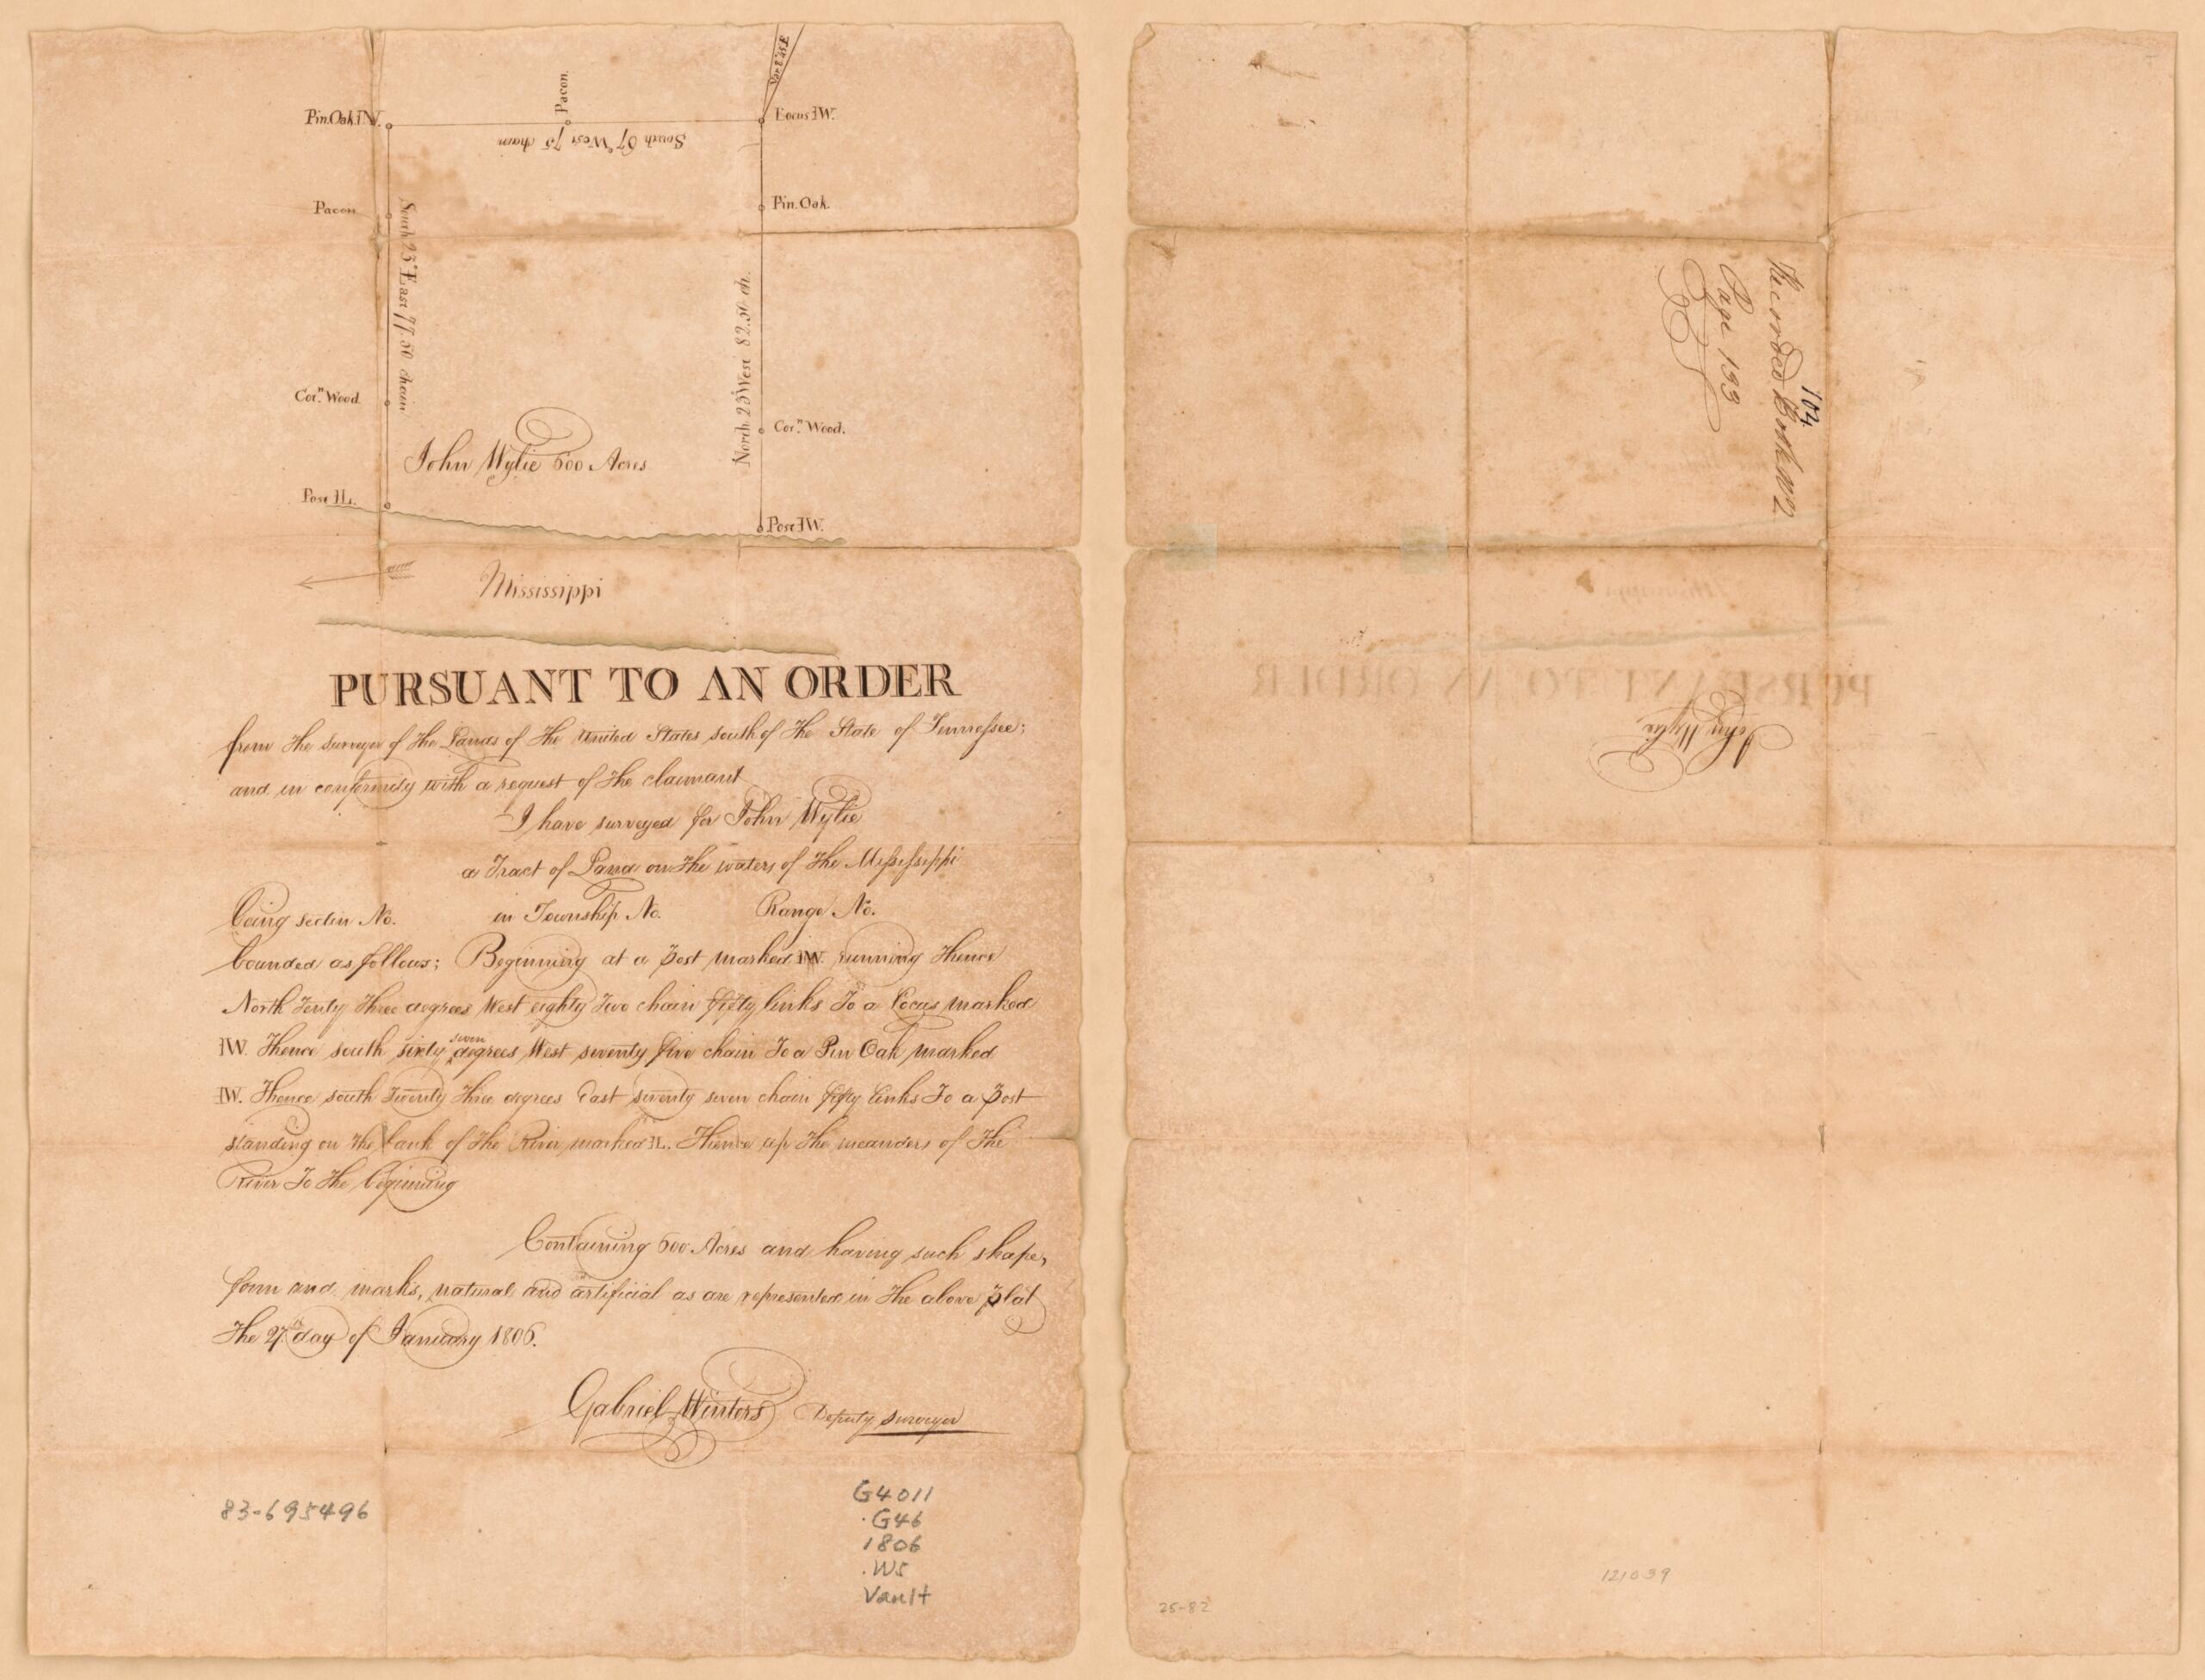 Var. 8°45'E
Pacon.
Pin.Oak.IW.
Locus IW.
South 67° West 75 chain
Pacon
Pin.Oak.
South 23° East 77.50 chain
North 23° West 82.50 ch.
Cor.n Wood
Cor.n Wood.
John Wylie 600 Acres
Post IL.
Post IW.
Mississippi
PURSUANT TO AN ORDER
from the surveyor of the Lands of the United States south of the State of Tennessee;
and in conformity with a request of the claimant
I have surveyed for John Wylie
a Tract of Land on the waters of the Mississippi
being section No. in Township No. Range No.
bounded as follows; Beginning at a Post marked IW. running Thence
North Tenty Three degrees West eighty Two chain fifty links To a Locus marked
IW. Thence south sixty seven degrees West seventy five chain To a Pin Oak marked
IW. Thence south Twenty Three degrees East seventy seven chain fifty links To a Post
standing on the bank of the River marked IL. Thence up the meanders of The
River To the beginning
Containing 600 Acres and having such shape,
form and marks, natural and artificial as are represented in the above plat
The 27th day of January 1806.
Gabriel Winters Deputy surveyor
83-695496
G4011
.G46
1806
.W5
Vault
104
Recorded Book No 2
Page 193
John Wylie
121039
25-82